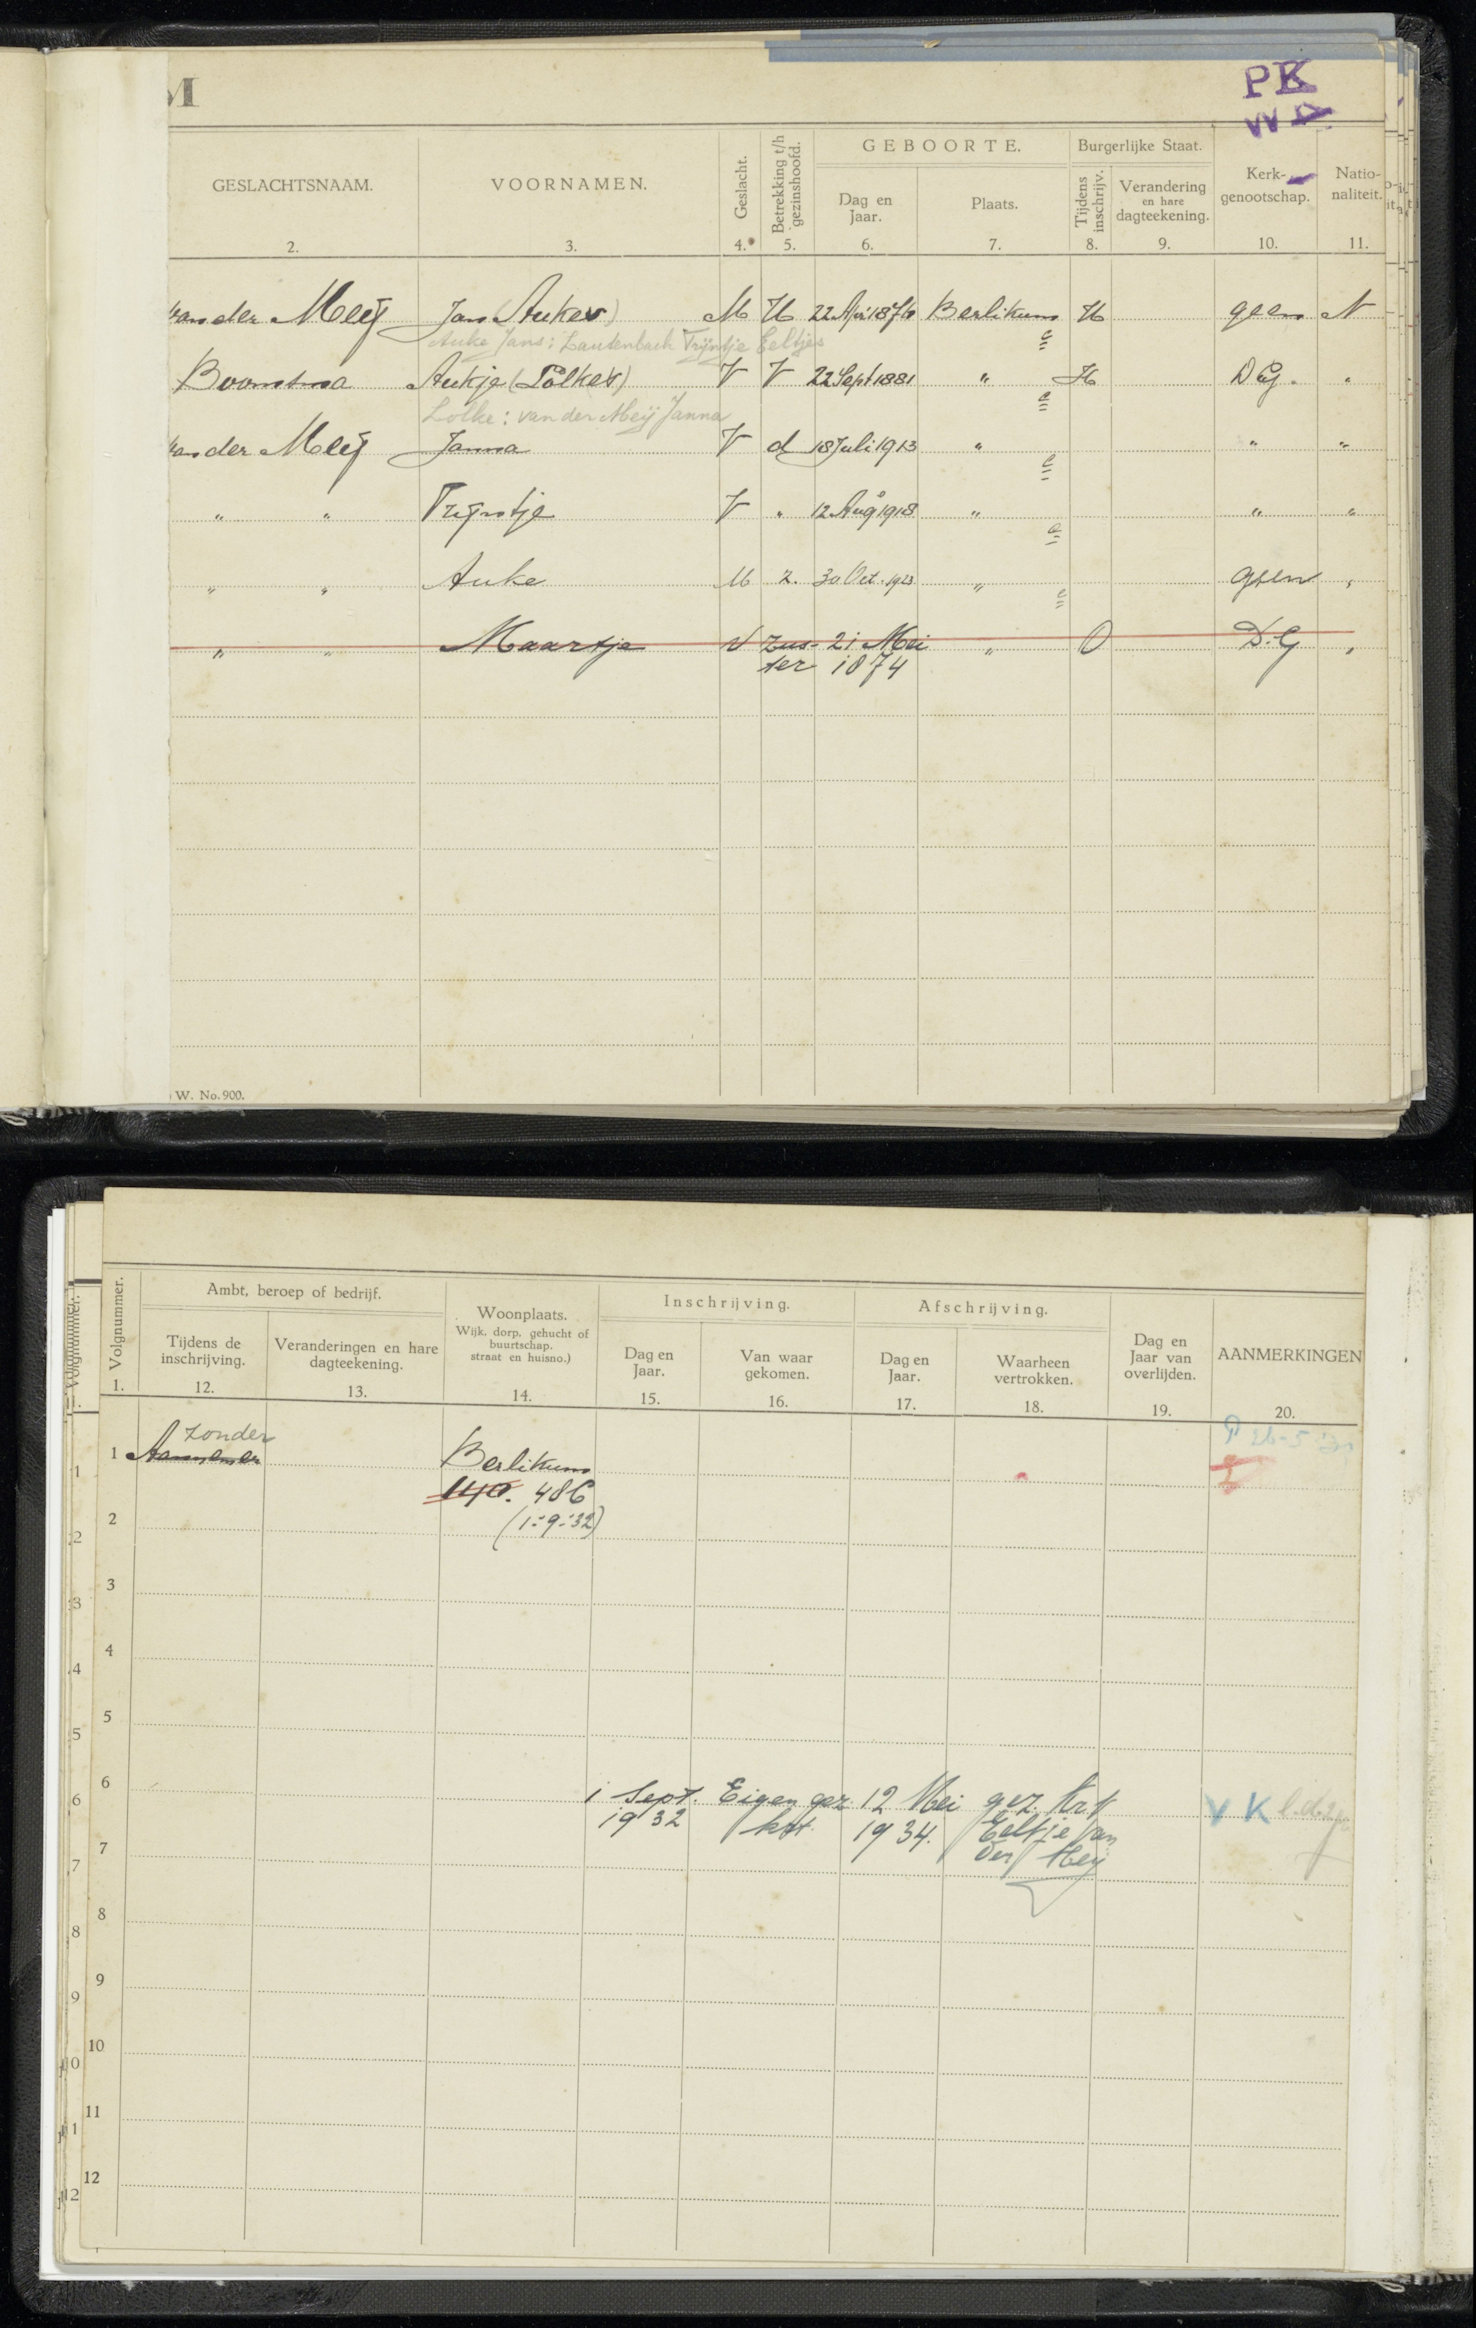 M
PK
GESLACHTSNAAM.
VOORNAMEN.
Geslacht.
Betrekking t/h gezinshoofd.
GEBOORTE.
Dag en Jaar.
Plaats.
Burgerlijke Staat.
Tijdens inschrijv.
Verandering en hare dagteekening.
Kerk-genootschap.
Natio-naliteit.
2. 3. 4. 5. 6. 7. 8. 9. 10. 11.
van der Meij Jan (Aukes) M H 22 Apr 1876 Berlikum H geen N
Auke Jans: Lautenbach Trijntje Eeltjes
Boomsma Aukje (Lolkes) V V 22 Sept 1881 " H D.G. "
Lolke: van der Meij Janna
van der Meij Janna V d 18 Juli 1913 " " "
" " Trijntje V " 12 Aug 1918 " " "
" " Auke M z. 30 Oct. 1923 " geen "
" " Maartje V Zus- 21 Mei " O D.G "
ter 1874
W. No. 900.
Volgnummer.
Ambt, beroep of bedrijf.
Tijdens de inschrijving.
Veranderingen en hare dagteekening.
Woonplaats.
Wijk, dorp, gehucht of buurtschap.
straat en huisno.)
Inschrijving.
Dag en Jaar.
Van waar gekomen.
Afschrijving.
Dag en Jaar.
Waarheen vertrokken.
Dag en Jaar van overlijden.
AANMERKINGEN
1. 12. 13. 14. 15. 16. 17. 18. 19. 20.
zonder
1 Aannemer Berlikum
486
2 (1-9-'32)
3
4
5
6 1 Sept. Eigen gez. 12 Mei gez. Krt
1932 krt. 1934. Eeltje van
der Meij
V K
7
8
9
10
11
12